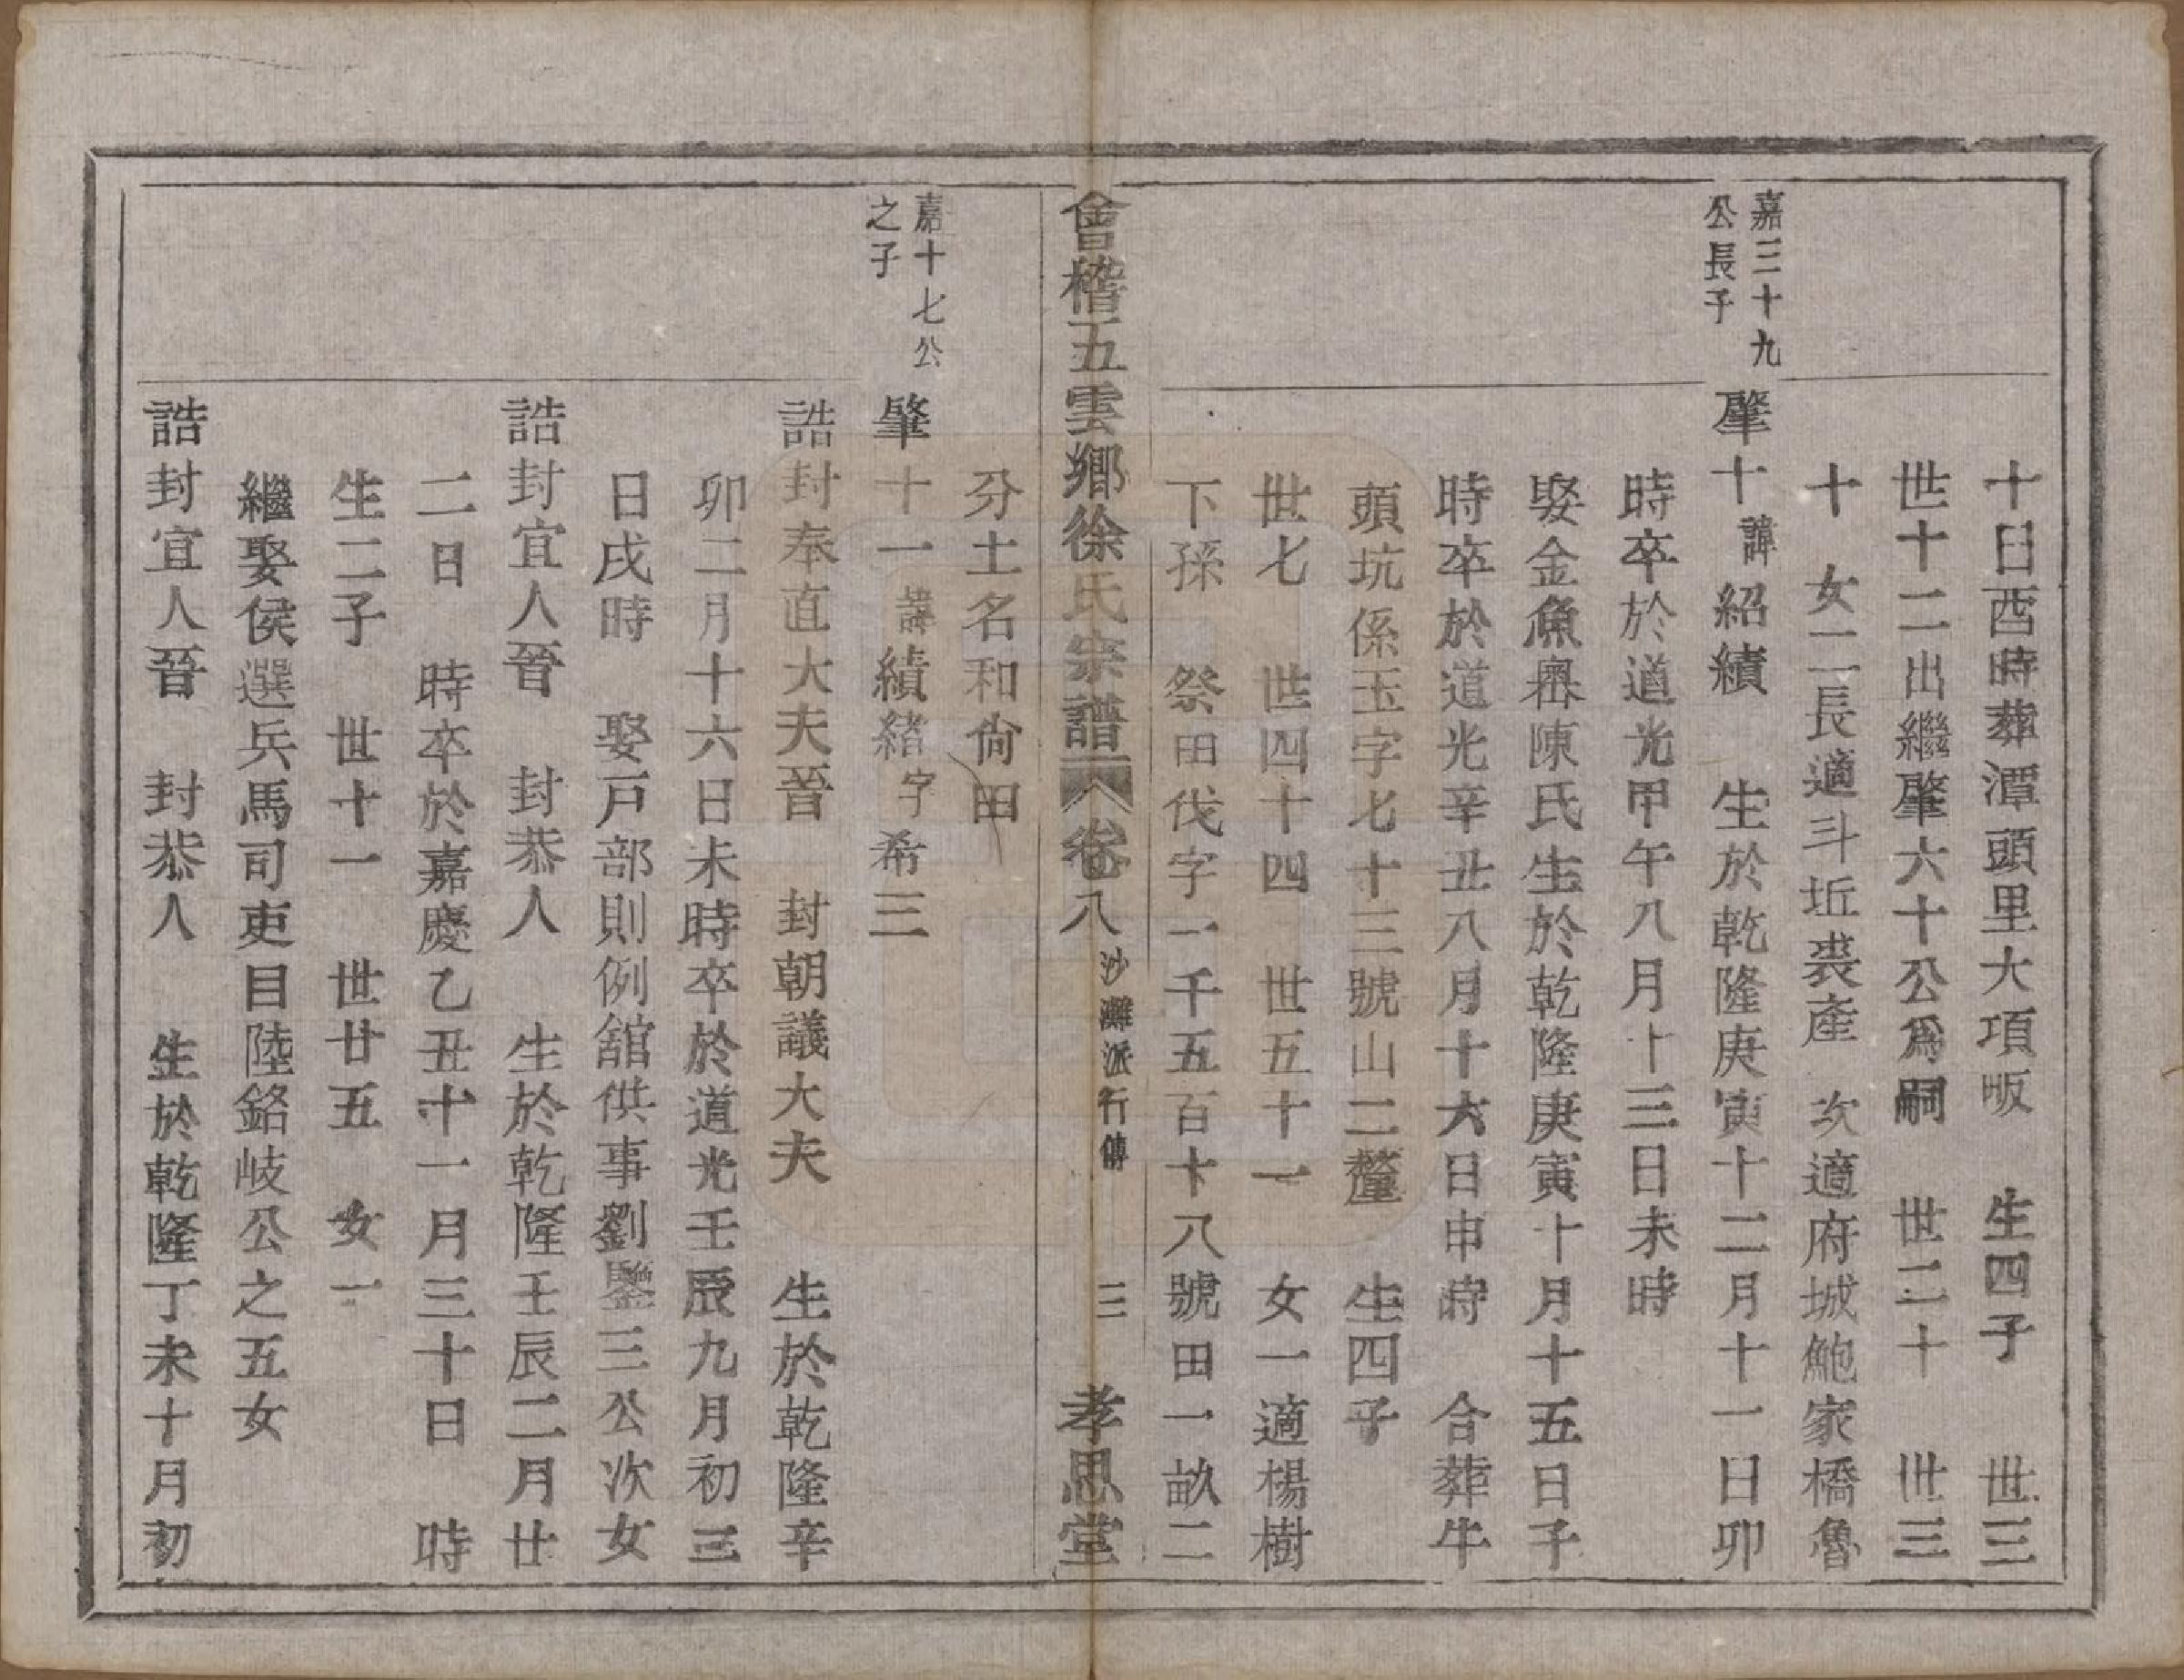 十日酉時葬潭頭里大項畈　生四子　世三
世十二出繼肇六十公爲嗣　世二十　世三
十　女二長適斗坵裘產　次適府城鮑家橋魯
嘉三十九
公長子
肇十諱紹績　生於乾隆庚寅十二月十一日卯
時卒於道光甲午八月十三日未時
娶金魚嶴陳氏生於乾隆庚寅十月十五日子
時卒於道光辛丑八月十六日申時　合葬牛
頭坑係玉字七十三號山二釐　生四子
世七　世四十四　世五十一　女一適楊樹
下孫　祭田伐字一千五百十八號田一畝二
會稽五雲鄉徐氏宗譜　卷八　沙灘派行傳　三　孝思堂
分土名和尙田
嘉十七公
之子
肇十一諱績緒字希三
誥封奉直大夫晉　封朝議大夫　生於乾隆辛
卯二月十六日未時卒於道光壬辰九月初三
日戌時　娶戶部則例舘供事劉鑒三公次女
誥封宜人晉　封恭人　生於乾隆壬辰二月廿
二日　時卒於嘉慶乙丑十一月三十日　時
生二子　世十一　世廿五　女一
繼娶侯選兵馬司吏目陸銘岐公之五女
誥封宜人晉　封恭人　生於乾隆丁未十月初